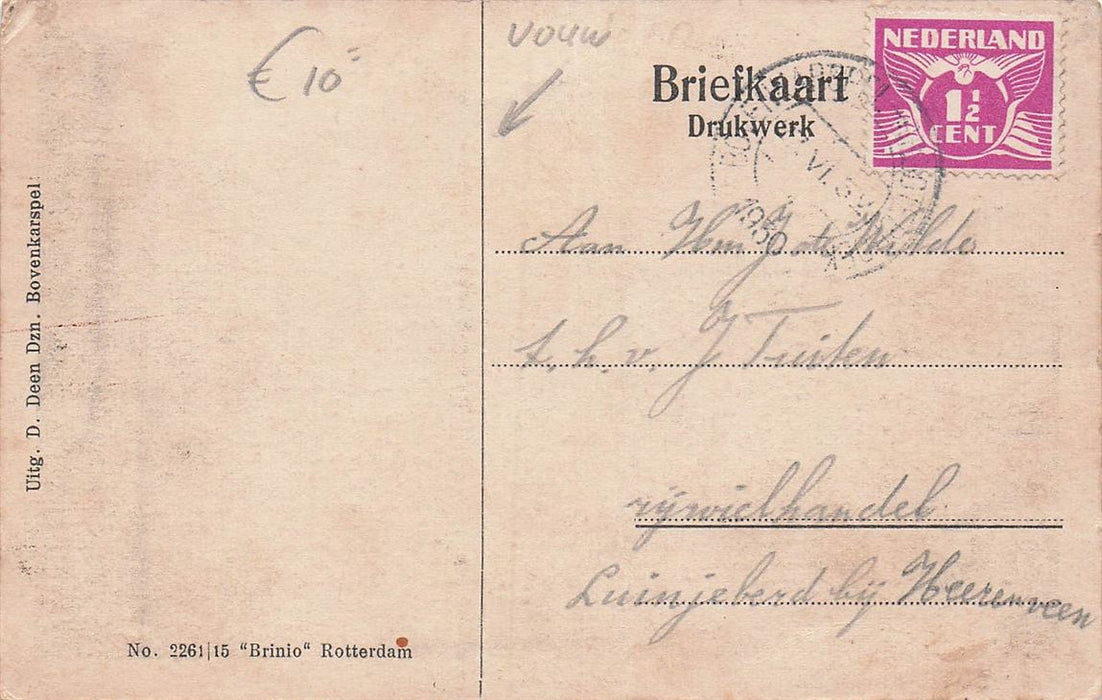 € 10=
vouw
Briefkaart
Drukwerk
NEDERLAND
1½
CENT
VI
1930
Aan Hm J de
t.h.v. J Tuiten
rijwielhandel
Luinjeberd bij Heerenveen
Uitg. D. Deen Dzn. Bovenkarspel
No. 2261|15 "Brinio" Rotterdam